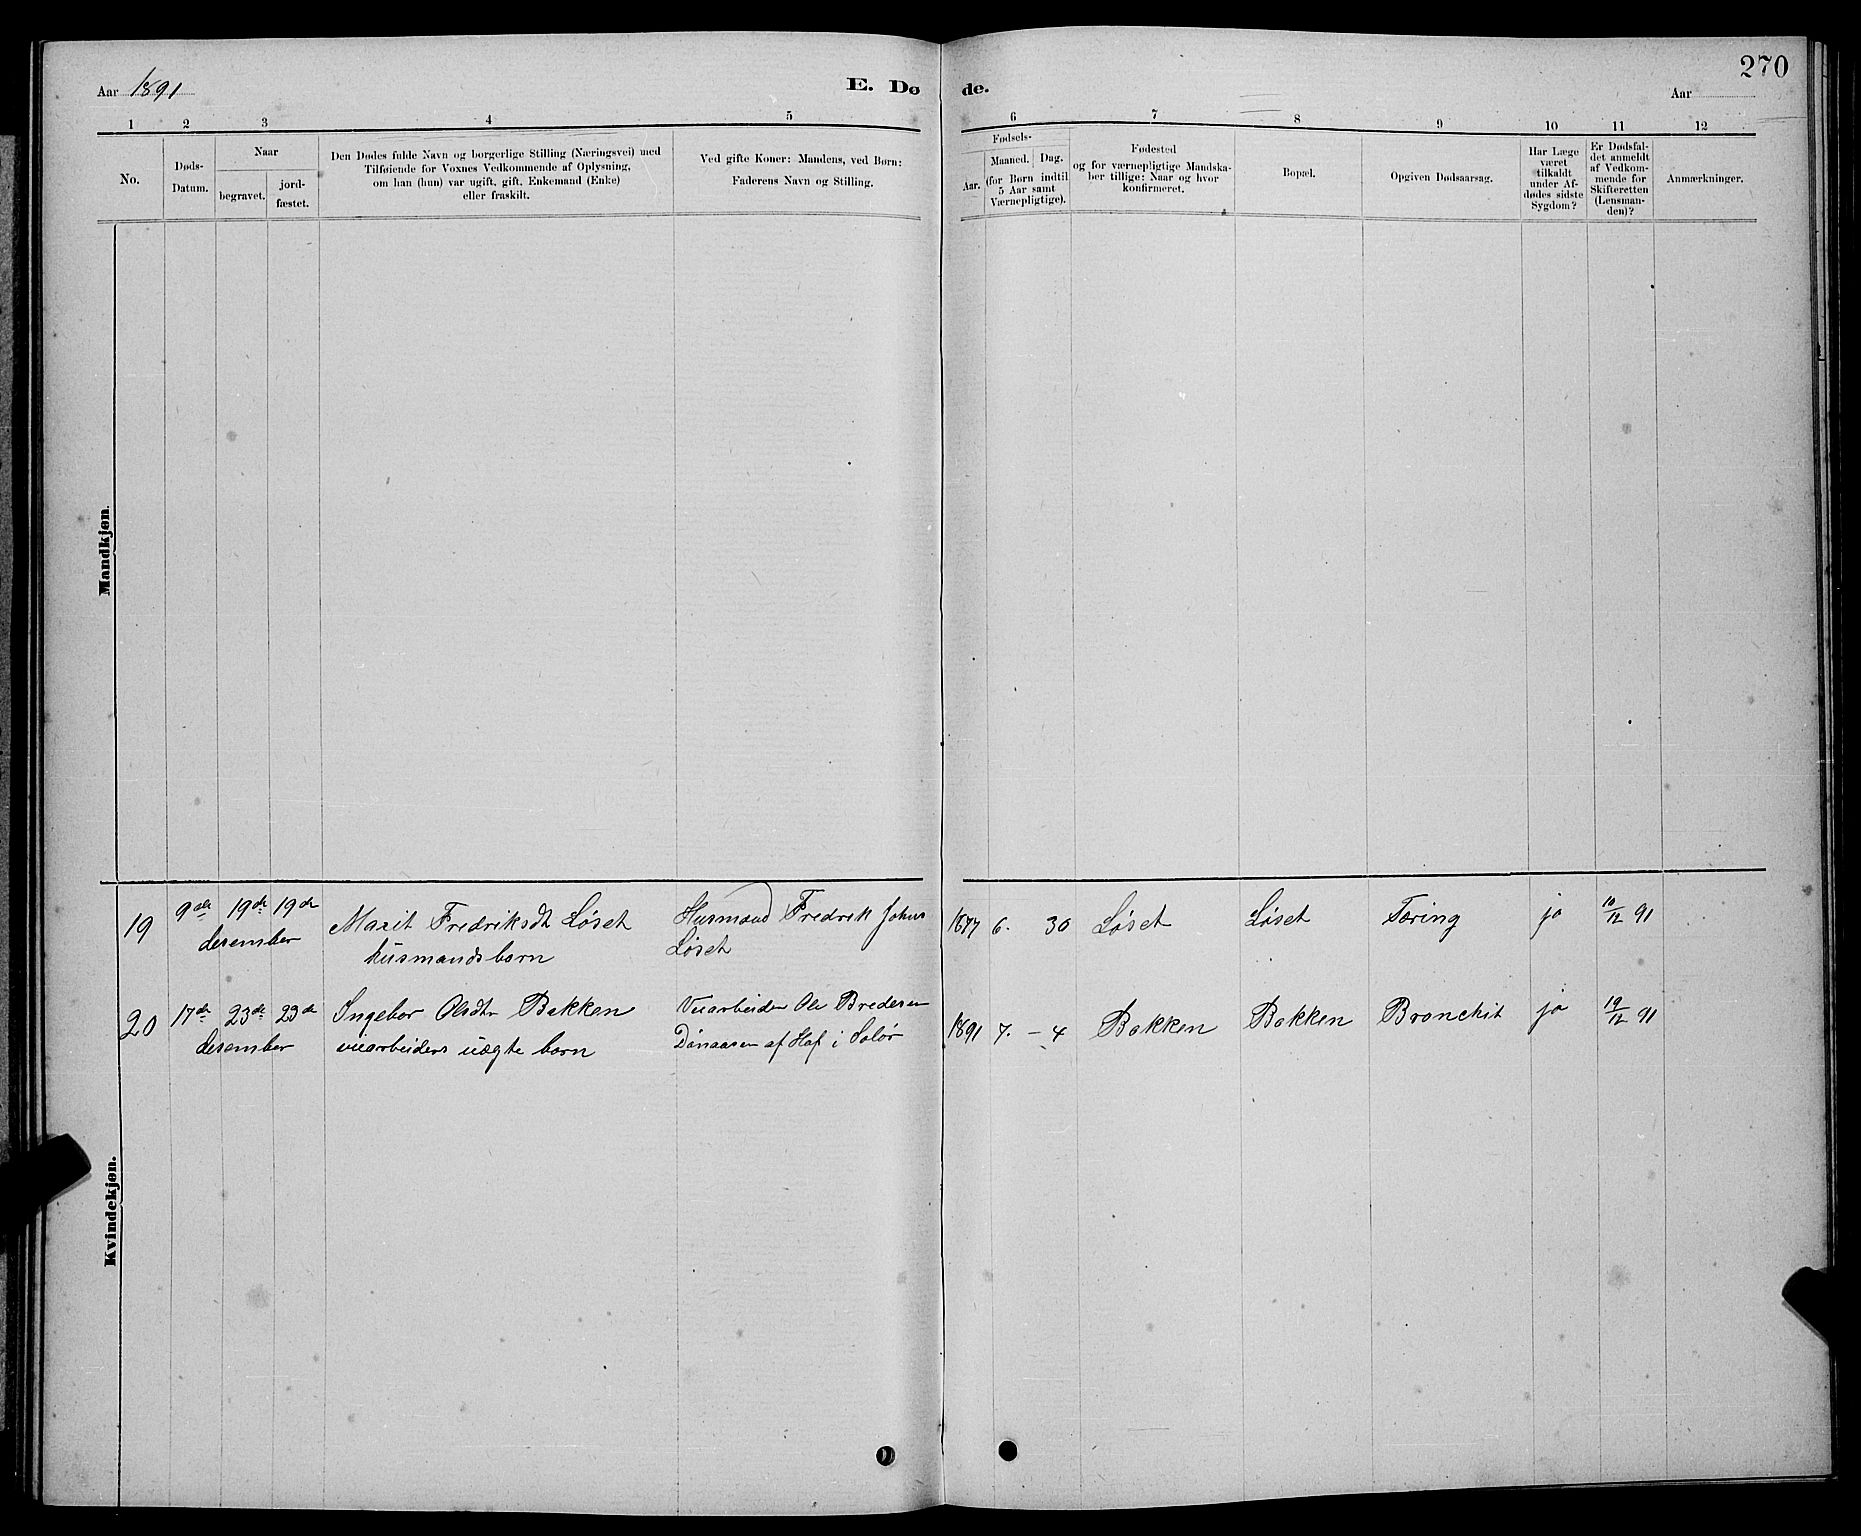 270
Aar 1891
E. Dø
de.
Aar
1 2 3 4 5 6 7 8 9 10 11 12
No.
Døds-
Datum.
Naar
begravet.
jord-
fæstet.
Den Dødes fulde Navn og borgerlige Stilling (Næringsvei) med
Tilføiende for Voxnes Vedkommende af Oplysning,
om han (hun) var ugift, gift, Enkemand (Enke)
eller fraskilt.
Ved gifte Koner: Mandens, ved Børn:
Faderens Navn og Stilling.
Fødsels-
Aar.
Maaned. Dag.
(for Børn indtil
5 Aar samt
Værnepligtige).
Fødested
og for værnepligtige Mandska-
ber tillige: Naar og hvor
konfirmeret.
Bopæl.
Opgiven Dødsaarsag.
Har Læge
været
tilkaldt
under Af-
dødes sidste
Sygdom?
Er Dødsfal-
det anmeldt
af Vedkom-
mende for
Skifteretten
(Lensman-
den)?
Anmærkninger.
Mandkjøn.
Kvindekjøn.
19 9de 19de 19de Marit Fredriksdt Løset Husmand Fredrik Johns 1877 6. 30 Løset Løset Tæring ja 10/12 91
desember husmandsbarn Løset
20 17de 23de 23de Ingebor Olsdtr Bakken Veiarbeider Ole Bredesen 1891 7. – 4 Bakken Bakken Bronchit ja 19/12 91
desember veiarbeiders uægte barn Dønaasen af Hof i Solør